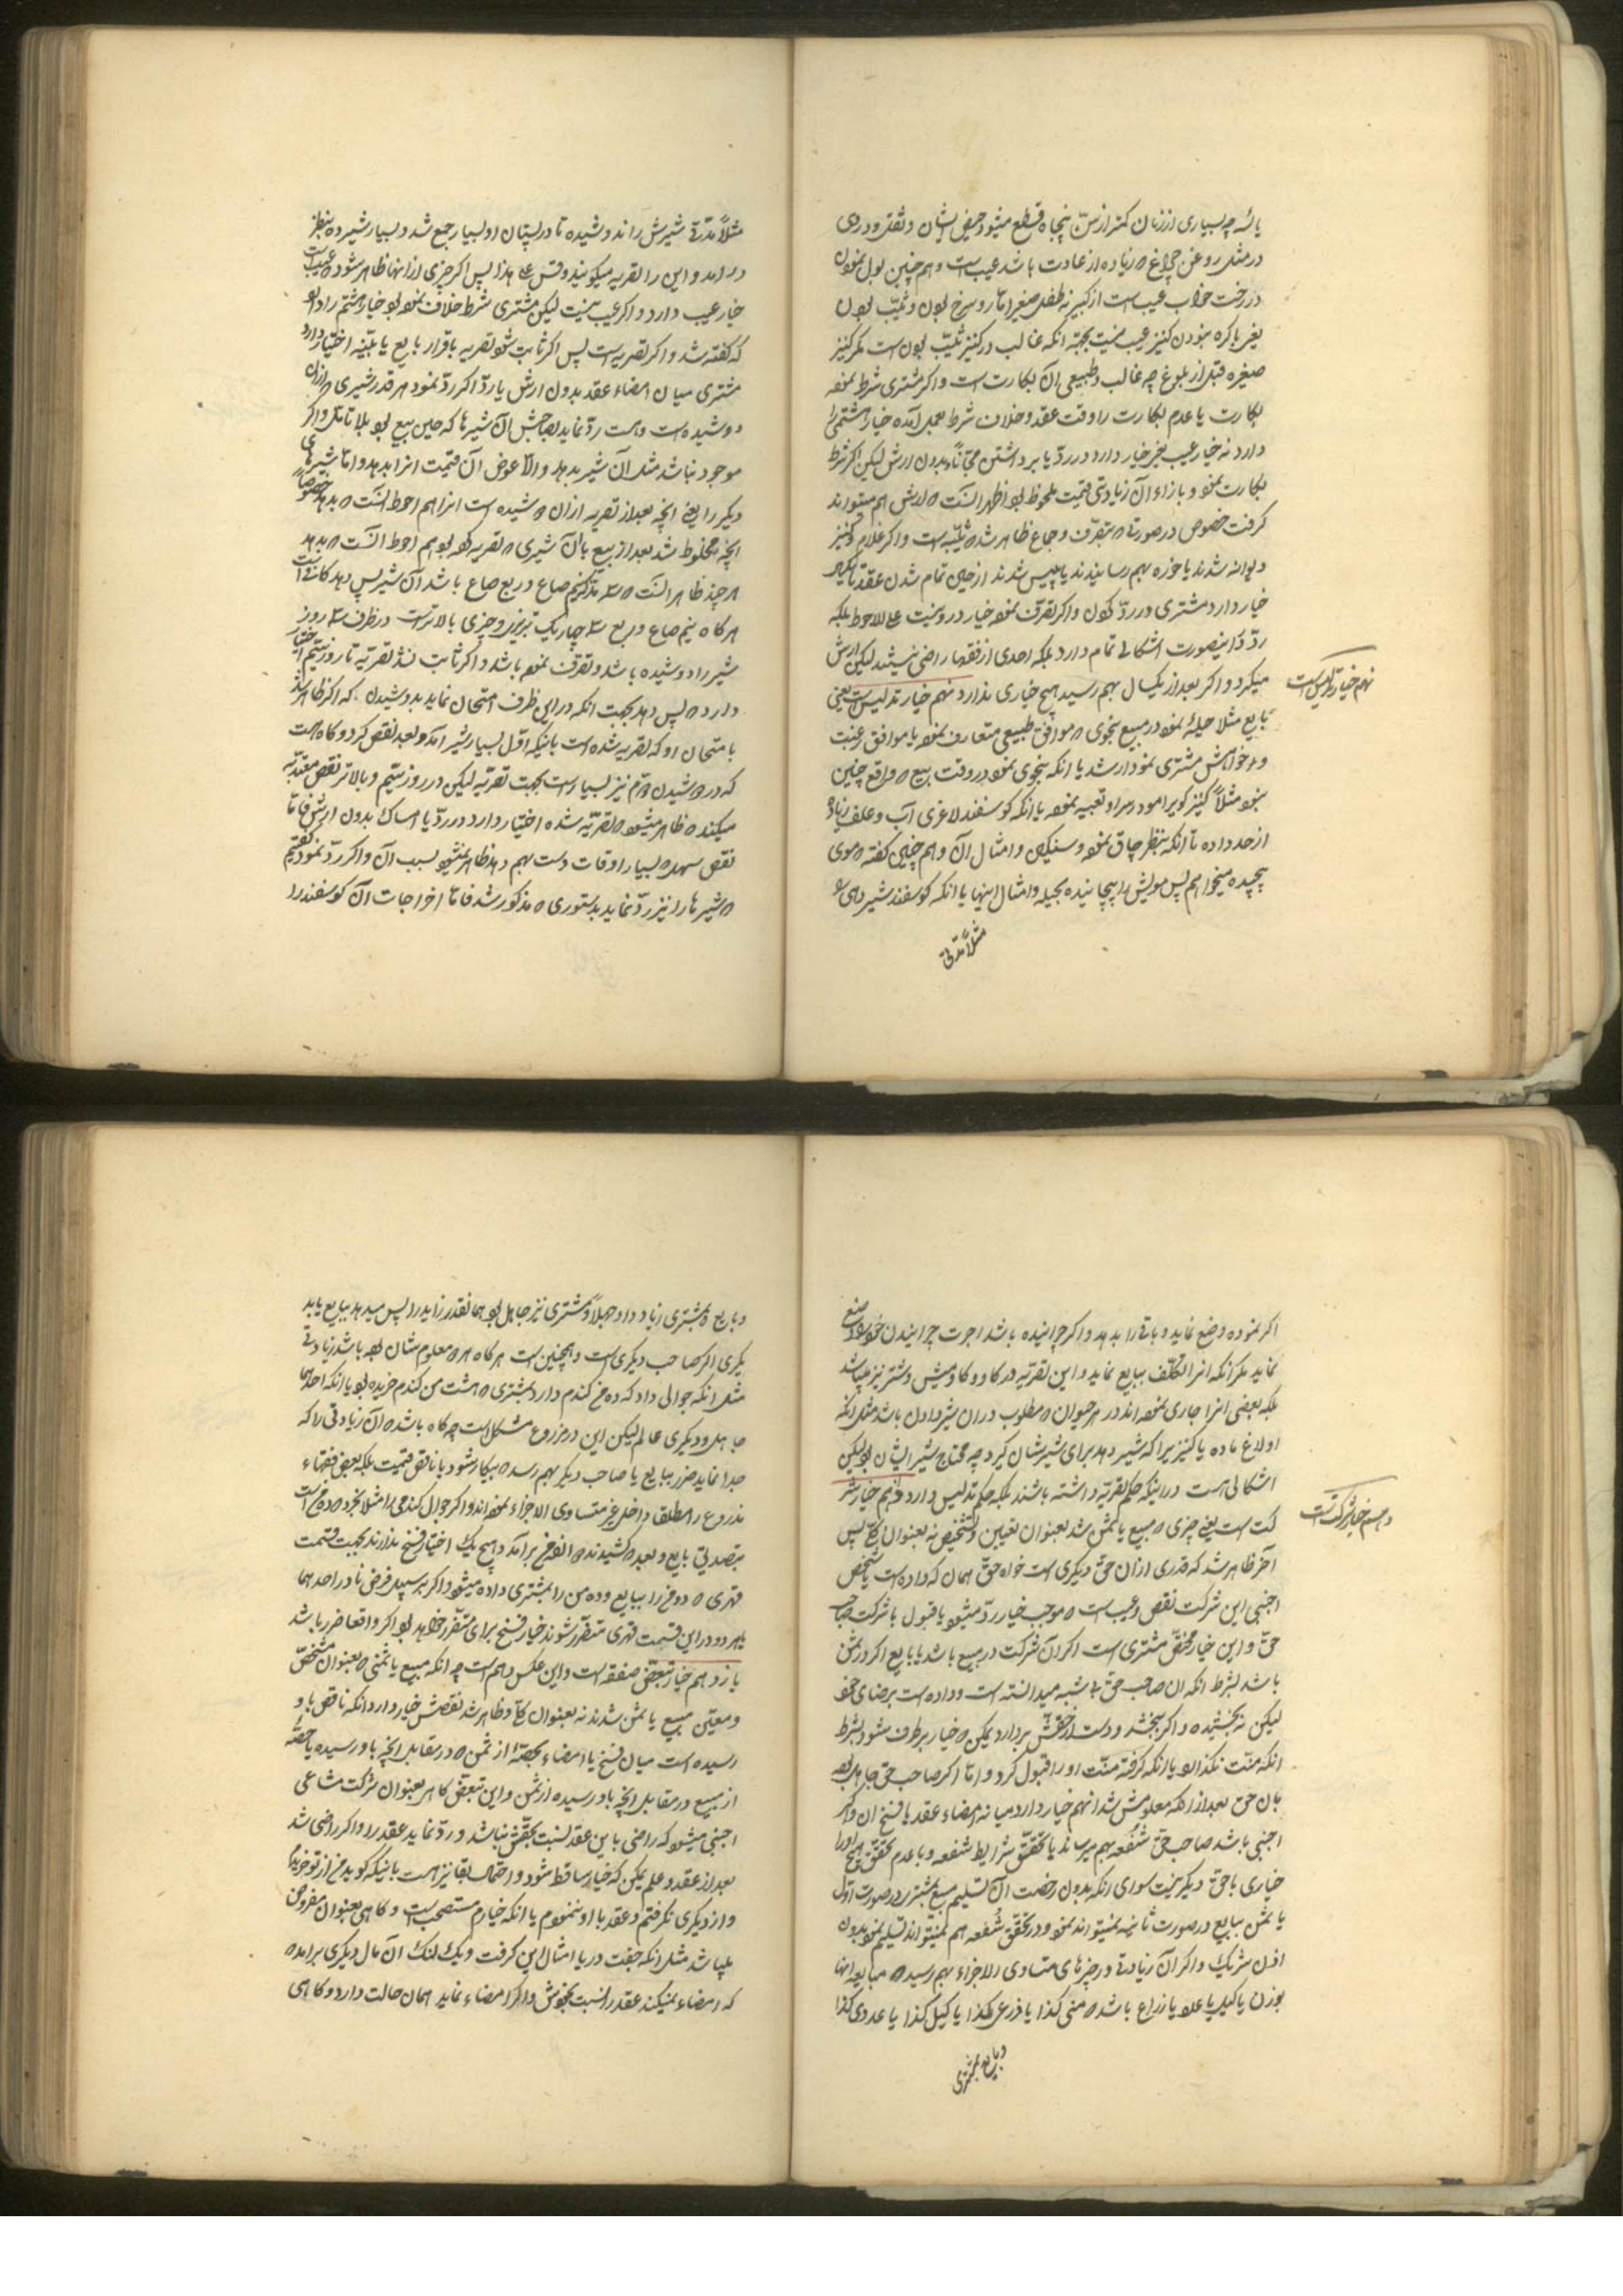 یائسه چه بسیاری از زنان کمتر از سن پنجاه قطع میشود حیض ایشان و ثفل و دردی
در مثل روغن چراغ ه زیاده از عادت باشد عیب است و هم چنین بول نمودن
در رخت خواب عیب است از کبیر نه طفل صغیر اما روسرخ بودن و ثیّب بودن
یعنی باکره نبودن کنیز عیب نیست بجهة انکه غالب در کنیز ثیّب بودن است مکر کنیز
صغیره قبل از بلوغ چه غالب و طبیعی ان بکارت است و اکر مشتری شرط نموه
بکارت یا عدم بکارت را وقت عقد و خلاف شرط بعمل آمده خیار اشتراط
دارد نه خیار عیب یعنی خیار دارد در ردّ یا برداشتن مجّاناً و بدون ارش لیکن اکر شرط
بکارت نمو و بازاء آن زیادتی قیمت ملحوظ بو اظهر انست ه ارش هم میتواند
کرفت خصوص در صورتی ه بتصرّف و جماع ظاهر شد ه ثیّبه است و اکر غلام و کنیز
دیوانه شدند یا خوره بهم رسانیدند یا پیس شدند از حین تمام شدن عقد تا یکسال
خیار دارد مشتری در ردّ کردن و اکر تصرّف نموه خیار در رد نیست علی الاحوط بلکه
ردّ در اینصورت اشکالی تمام دارد بلکه احدی از فقها راضی نیستند لیکن ارش
میکیرد و اکر بعد از یکسال بهم رسید هیچ خیاری ندارد نهم خیار تدلیس است یعنی
نهم خیار تدلیس است
بایع مثلا حیلۀ نموه در مبیع بنحوی ه موافق طبیعی متعارف نموه یا موافق رغبت
و خواهش مشتری نمودار شد یا انکه بنحوی نموه در وقت بیع ه واقع چنین
نبوه مثلاً کنیز کویرا مو در سر او تعبیه نموه یا انکه کوسفند لاغری آب و علف زیاده
از حد داده تا انکه بنظر چاق نموه و سنکین و امثال آن و هم چنین کفته ه موی
پیچیده میخواهم پس مویش را پیچانیده بحیله و امثال اینها یا انکه کوسفند شیر دهی را
مثلاً مدّتی
مثلاً مدّتی شیرش را ندوشیده تا در پستان او بسیار جمع شد و بسیار شیر ده بنظر
درآمد و این را تصریه میکویند و قس علی هذا پس اکر چیزی از اینها ظاهر شود ه عیب است
خیار عیب دارد و اکر عیب نیست لیکن مشتری شرط خلاف نموه بو خیار اشتراط دارد
که کفته شد و اکر تصریه است پس اکر ثابت شو تصریه باقرار بایع یا ببیّنه اختیار دارد
مشتری میان امضاء عقد بدون ارش یا ردّ اکر ردّ نمود هر قدر شیری ه از ان
دوشیده است و هست ردّ نماید بصاحبش آن شیرها که حین بیع بو بلا تامّل و اکر
موجود نباشد مثل آن شیر بدهد و الّا عوض آن قیمت انرا بدهد و اما شیرهای
دیکر را یعنی انچه بعد از تصریه از ان ه شیده است انرا هم احوط انست ه بدهد خصوصاً
انچه مخلوط شد بعد از بیع بان شیری ه تصریه کرده بو هم احوط انست ه بدهد
هر چند ظاهر انست ه سه مدّ کنیم صاع و ربع صاع باشد آن شیر پس دهد کافیست
هر کاه نیم صاع و ربع سه چاریک تبریزی و چیزی بالاتر است در ظرف سه روز
شیر را دوشیده باشد و تصرّف نموه باشد و اکر ثابت نشد تصریّه تا روز سیّم اختیار
دارد ه پس دهد بجهت انکه در این ظرف امتحان نماید بدوشیدن که اکر ظاهر شد
بامتحان او که تصریه شده است باینکه اوّل بسیار شیر آمد و بعد نقص کرد و کاه هست
که در ه شیدن دوّم نیز بسیار است بجهت تصریّه لیکن در روز سیّم و بالاتر نقص معتدّ به
میکند ه ظاهر میشود ه تصریّه شده اختیار دارد در ردّ یا امساک بدون ارش فاما
نقص سهل ه بسیار اوقات دست بهم دهد ظاهر نمیشود بسبب آن و اکر ردّ نمود کفتیم
ه شیرها را نیز ردّ نماید بدستوری ه مذکور شد فامّا اخراجات ان کوسفند را
اکر نموده وضع نماید و باقی را بدهد و اکر چرانیده باشد اجرت چرانیدن خود را وضع
نماید مکر انکه انرا تکلّف ببایع نماید و این تصریّه در کاو و کاومیش و شتر نیز میباشد
بلکه بعضی انرا جاری نموه اند در هر حیوان ه مطلوب در ان شیر دادن باشد مثل انکه
اولاغ ماده یا کنیز یرا که شیر دهد برای شیرشان کیرد چه محتاج بشیر ایشان بو لیکن
اشکالی هست در اینکه حکم تصریّه داشته باشند بلکه حکم تدلیس دارد دهم خیار شر
دهم خیار شرکت است
کت است یعنی چیزی ه مبیع یا ثمن شد بعنوان تعیین و تشخیص نه بعنوان کلّی پس
آخر ظاهر شد که قدری از ان حقّ دیکری است خواه حقّ همان که داده است یا شخص
اجنبی این شرکت نقص و عیب است ه موجب خیار ردّ میشود یا قبول با شرکت صاحب
حقّ و این خیار مختصّ مشتری است اکر آن شرکت در مبیع باشد یا بایع اکر در ثمن
باشد بشرط انکه ان صاحب حق بی شبه میدانسته است و داده است برضای خو
لیکن نه بخشیده و اکر ببخشد و دست از حقّش بردارد یمکن ه خیار برطرف شود بشرط
انکه منّت نکذارد یا انکه کرفته منّت او را قبول کرد و امّا اکر صاحب حق جاهل بو
بان حق بعد از انکه معلومش شد انهم خیار دارد میانه امضاء عقد یا فسخ ان و اکر
اجنبی باشد صاحب حق شُفعه بهم میرساند با تحقّق شرایط شفعه و با عدم تحقّق هیچ او را
خیاری یا حقّ دیکر نیست سوای انکه بدون رخصت آن تسلیم مبیع بمشتری در صورت اوّل
یا ثمن ببایع در صورت ثانیه نمیتواند نمو و در تحقّق شُفعه هم نمیتواند تسلیم نمو بدون
اذن شریک و اکر آن زیادتی در چیزهای متساوی الاجزاء بهم رسید ه مبایعه انها
بوزن یا کیل یا عدد یا ذراع باشد ه منی کذا یا ذرعی کذا یا کیل کذا یا عددی کذا
و بایع بمشتری
و بایع بمشتری زیاد داد جهلاً و مشتری نیز جاهل بو همانقدر زاید را پس میدهد ببایع یا بد
یکری اکر صاحب دیکری است و همچنین است هر کاه هر ه معلومشان بوه باشد زیادتی
مثل انکه جوالی داد که ده من کندم دارد بمشتری ه هشت من کندم خریده بو یا انکه احدهما
جاهل و دیکری عالم لیکن این در مزروع مشکل است چه کاه باشد ه ان زیادتی را که
جدا نماید ضرر ببایع یا صاحب دیکر بهم رسد ه بیکار شود یا ناقص قیمت بلکه بعض فقهاء
مذروع را مطلقا داخل غیر متساوی الاجزاء نموه اند و اکر جوال کندمی را مثلا بخرد ه ده من است
بتصدیق بایع و بعد کشیدند ه انمن برآمد و هیچ یک اختیار فسخ ندارند بجهت قسمت
قهری ه دو من را ببایع و ده من را بمشتری داده میشود و اکر بر سبیل فرض نادر احدهما
یا هر دو در این قسمت قهری متضرّر شوند خیار فسخ برای متضرّر خواهد بو اکر واقعا ضرر باشد
یازدهم خیار تبعّض صفقه است و این عکس دهم است چه انکه مبیع یا ثمنی ه بعنوان مشخّص
و معیّن مبیع یا ثمن شدند نه بعنوان کلّی و ظاهر شد نقصش خیار دارد انکه ناقص باو
رسیده است میان فسخ یا امضاء بحصّۀ از ثمن ه در مقابل انچه باو رسیده یا حصّۀ
از مبیع در مقابل انچه باو رسیده از ثمن و این تبعّض کاهی بعنوان شرکت مشاعی
اجنبی میشود که راضی باین عقد نسبت بحقّش نباشد و ردّ نماید عقد را و اکر راضی شد
بعد از عقد و علم یمکن که خیار ساقط شود و احتمال بقا نیز هست باینکه کوید من از تو خریدم
و از دیکری نکرفتم و عقد با او ننموم یا انکه خیارم مستصحب است و کاهی بعنوان مفروض
میباشد مثل انکه جفت در یا امثال این کرفت و یک لنک آن مال دیکری برآمد ه
که امضاء نمیکند عقد را نسبت بخودش و اکر امضاء نماید همان حالت دارد و کاهی